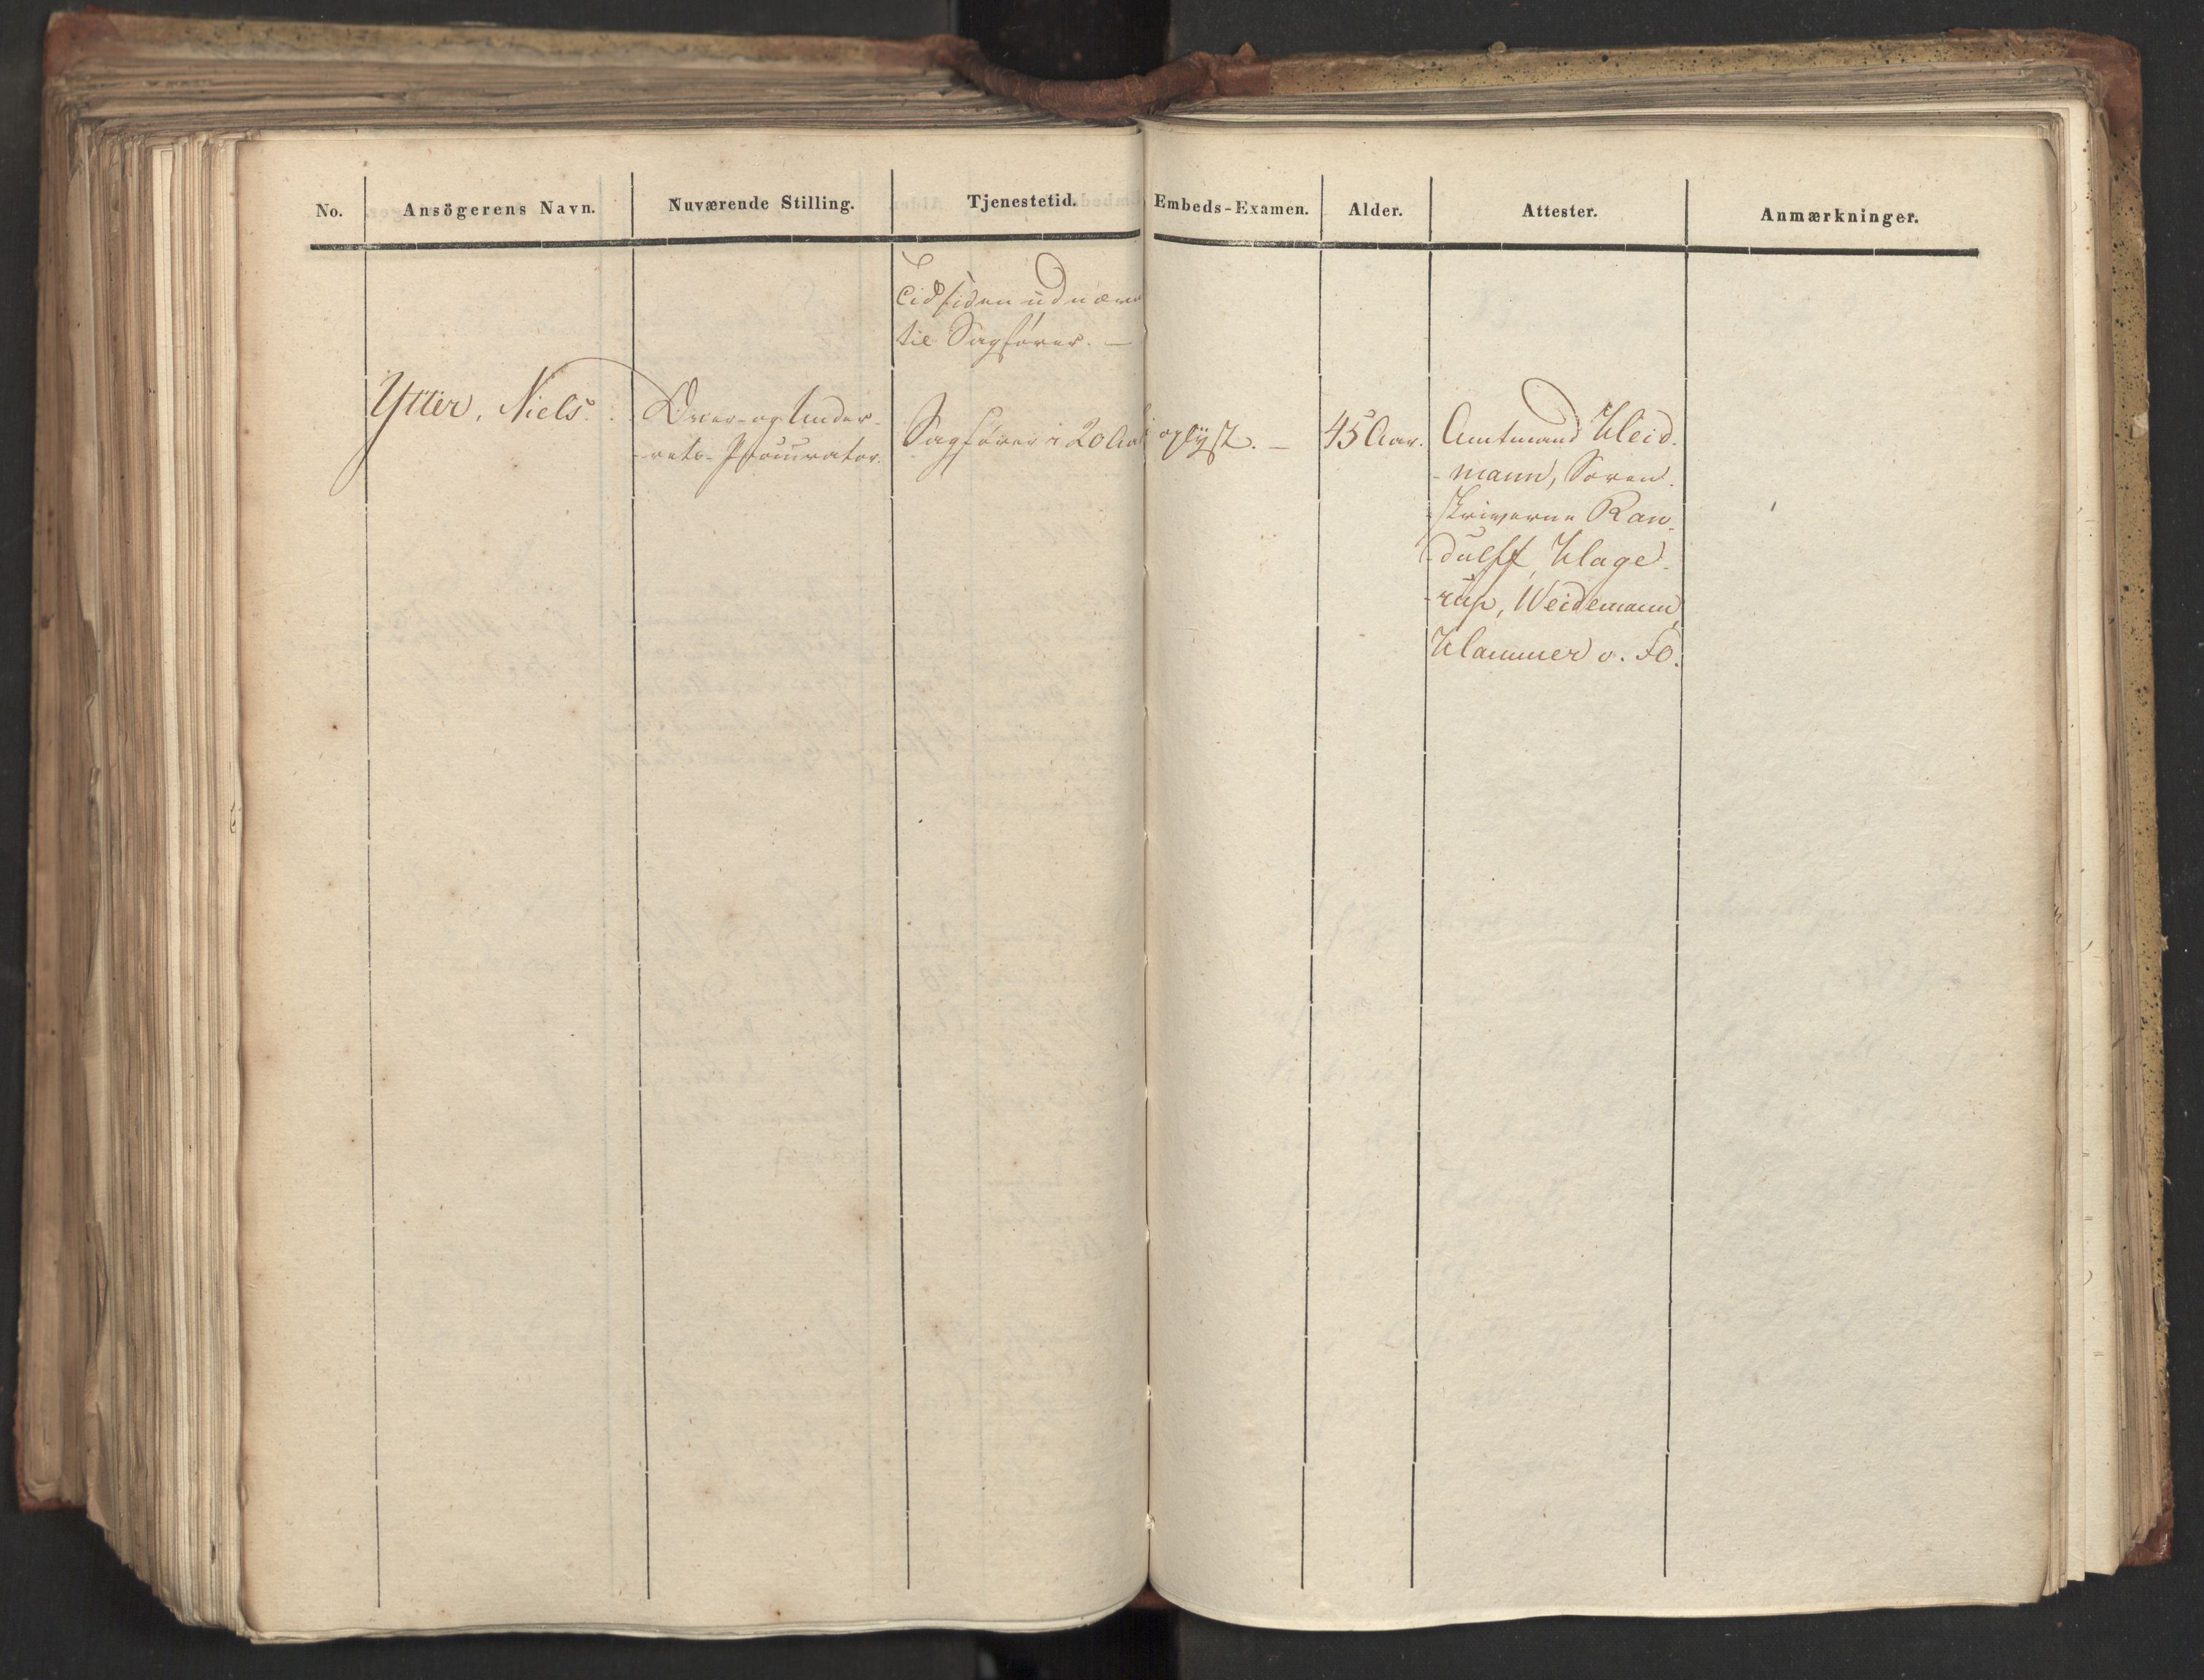 No. Ansögerens Navn. Nuværende Stilling. Tjenestetid. Embeds-Examen. Alder. Attester. Anmærkninger.
Tid siden udnævn
til Sagfører. —
Ytter, Niels. Over- og Under-
-rets-Procurator.
Sagfører i 20 Aar
oplyst. —
45 Aar.
Amtmand Kleid-
-mann, Soren-
skriverne Ran-
-dulff, Klage-
-rup, Weidemann,
Klammer o. Fl.